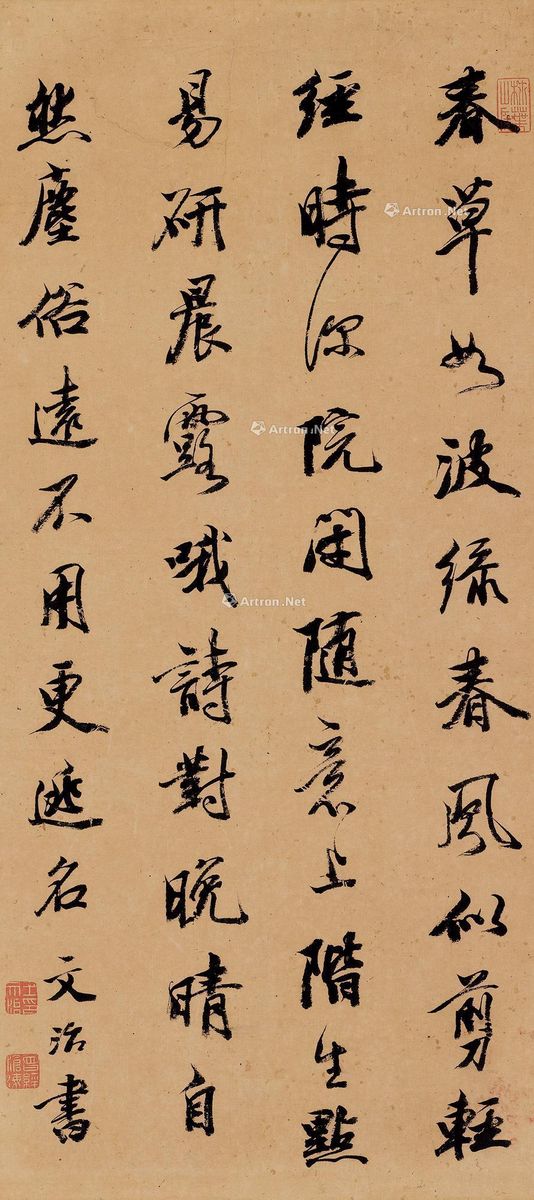 春草如波綠春風似剪輕
經時深院閉随意上階生點
易研晨露哦詩對晚晴自
然塵俗遠不用更逃名 文治書
曾經滄海
Artron.Net
Artron.Net
Artron.Net